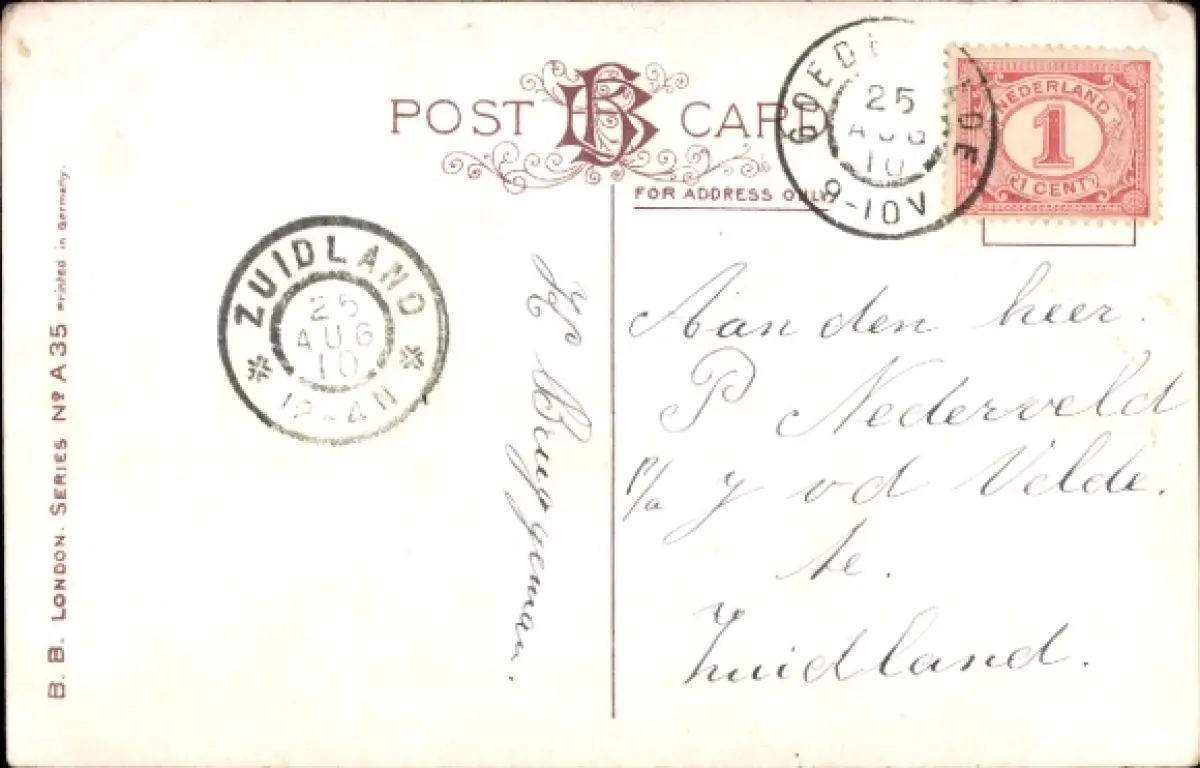 POST BB CARD
FOR ADDRESS ONLY
GOEDE
25
AUG
10
9-10V
NEDERLAND
1
(1 CENT)
ZUIDLAND
25
AUG
10
12-4N
B. B. LONDON. SERIES Nº A 35 Printed in Germany.
Bruggeman.
Aan den heer.
P Nederveld
p/a J vd Velde.
te.
Zuidland.